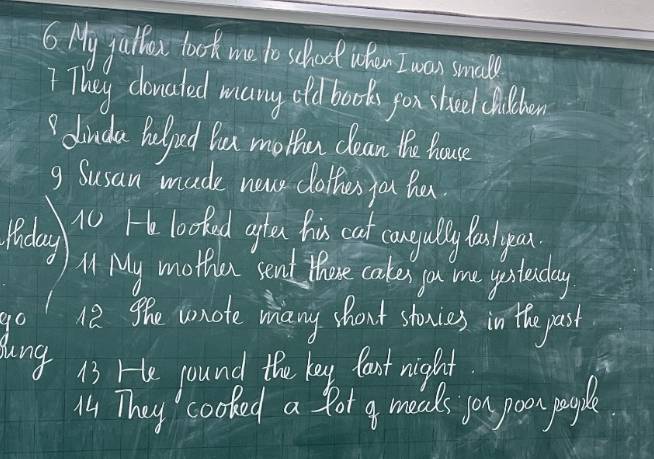 6 My father took me to school when I was small
7 They donated many old books for street children
8 Linda helped her mother clean the house
9 Susan made new clothes for her.
thday) 10 He looked after his cat carefully last year.
11 My mother sent these cakes for me yesterday.
go 12 She wrote many short stories in the past
oung 13 He found the key last night.
14 They cooked a lot of meals for poor people.